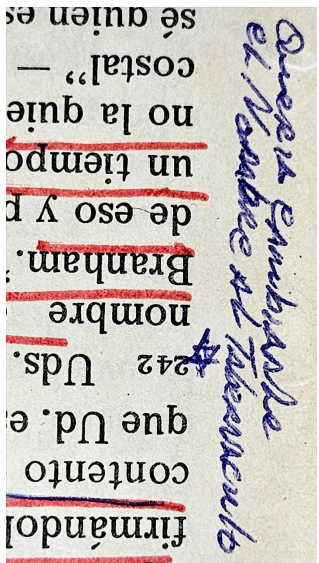 firmándol
contento
que Ud. e
242 Uds.
nombre
Branham.”
de eso y p
un tiempo
no la quie
costal” —
sé quien es
Queria Cambiarle
el Nombre Al Tabernaculo